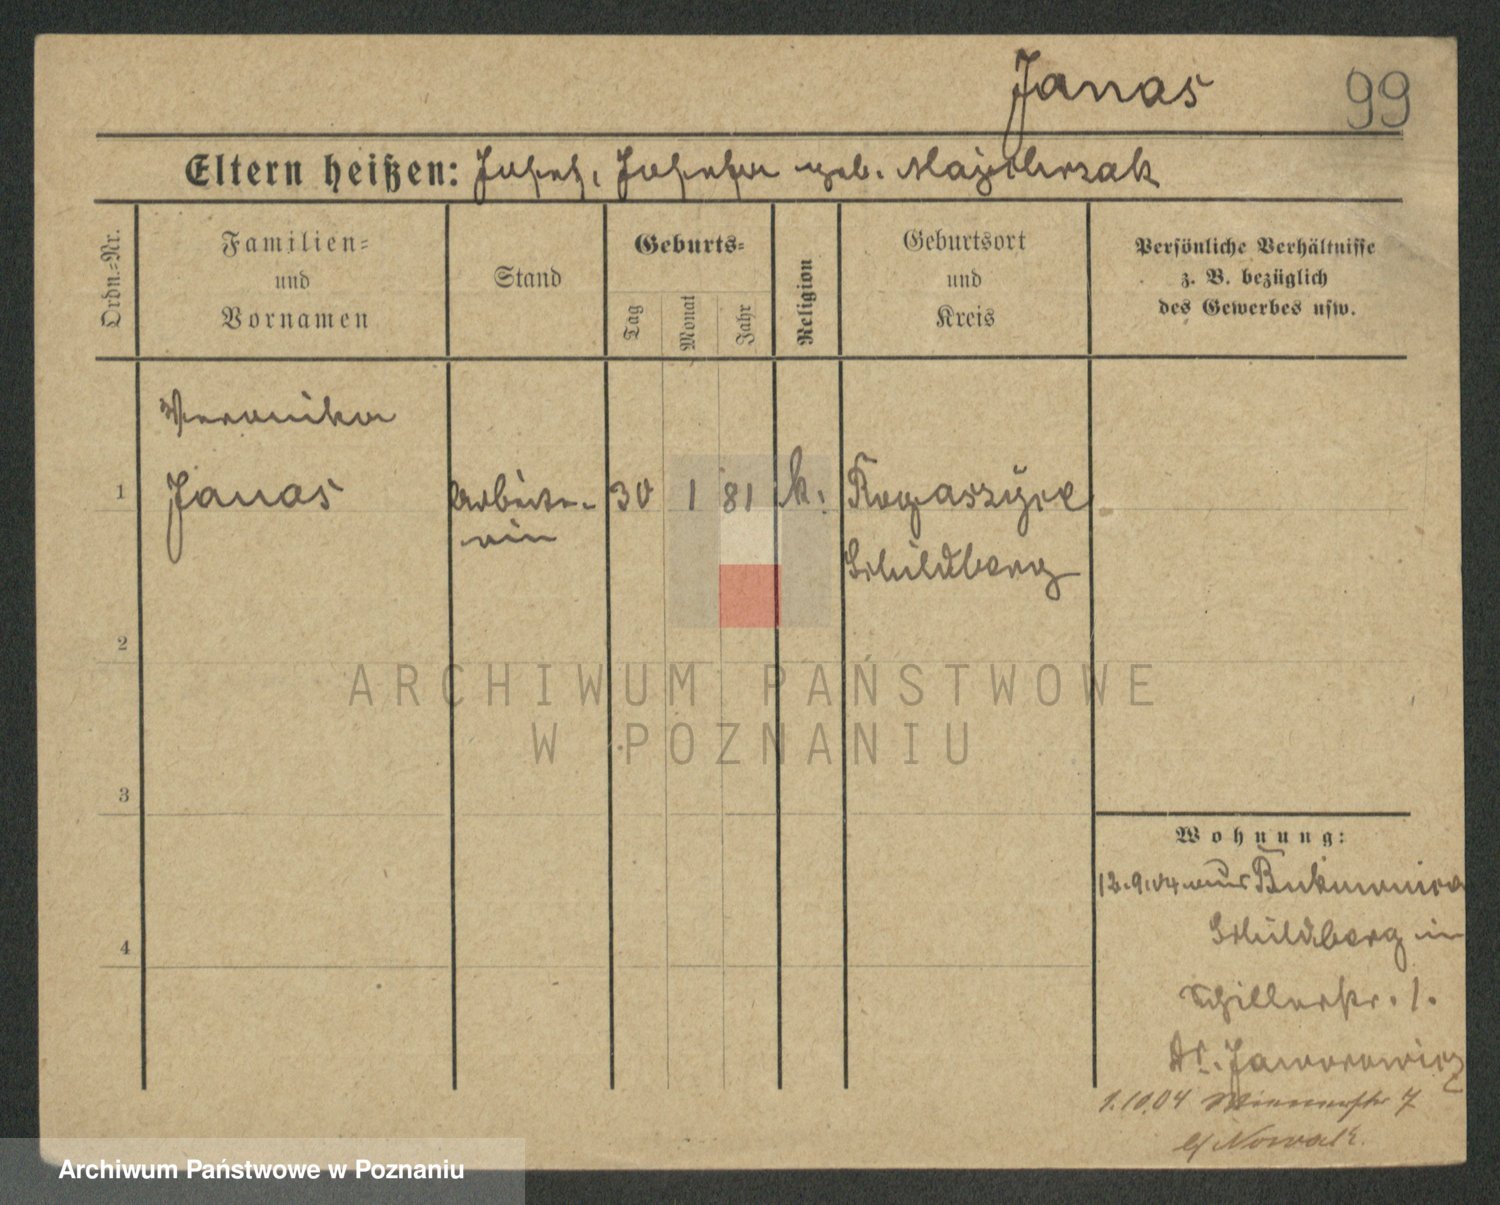 Janas
99
Eltern heißen: Josef, Josefa geb. Majcherzak
Ordn.=Nr.
Familien=
und
Vornamen
Stand
Geburts=
Tag
Monat
Jahr
Religion
Geburtsort
und
Kreis
Persönliche Verhältnisse
z. B. bezüglich
des Gewerbes usw.
Veronika
1 Janas Arbeite- 30 1 81 k. Rogaszyce
rin Schildberg
2
ARCHIWUM PAŃSTWOWE
W POZNANIU
3
Wohnung:
12.9.04 aus Bukownica
Schildberg in
4
Schillerstr. 1.
Dr. Jaworowicz
1.10.04 7
b/ Nowak.
Archiwum Państwowe w Poznaniu